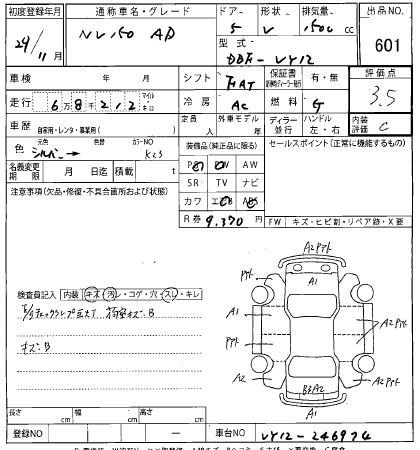 初度登録年月 通称車名・グレード ドア 形状 排気量 出品No.
24/11月 NV150 AD 5 V 1500 cc 601
型式 DBF-VY12
車検 年 月 シフト FAT 保証書 有・無 評価点
走行 6万8千212 マイル キロ 冷房 AC 燃料 G 3.5
車歴 自家用・レンタ・事業用( ) 定員 人 外車モデル 年 ディーラー 並行 ハンドル 左・右 内装評価 C
色 元色 シルバー→ 色替 カラーNO K23 装備品(純正品に限る) セールスポイント(正常に機能するもの)
名義変更期限 月 日迄 積載 t
PS PW AW
SR TV ナビ
注意事項(欠品・修復・不具合箇所および状態)
カワ エアB ABS
R券 9,370円 FW キズ・ヒビ割・リペア跡・X要
検査員記入 内装 キズ・汚レ・コゲ・穴・スレ・キレ
キズ・B
A2アト
アト A1
A1
アト A2アト
A2 B3A2 A2アト
A1
長さ cm 幅 cm 高さ cm
登録NO ー 車台NO VY12-246974